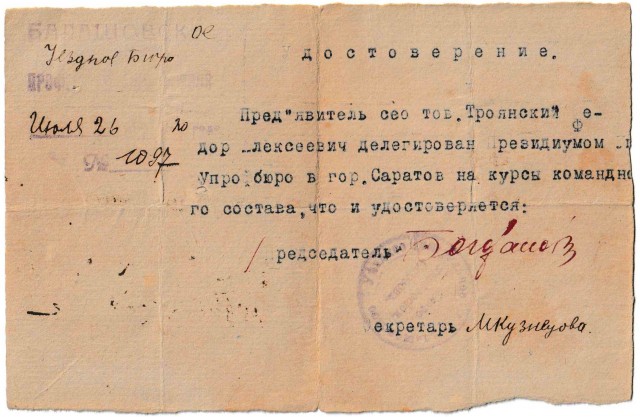 БАЛАШОВСКОЕ
Уездное Бюро
Июля 26 20
№ 1097
Удостоверение.
Пред"явитель сео тов. Троянский Фе-
дор Алексеевич делегирован Президиумом
Упробюро в гор. Саратов на курсы командно-
го состава, что и удостоверяется:
Председатель Богданов
Секретарь МКузнецова.